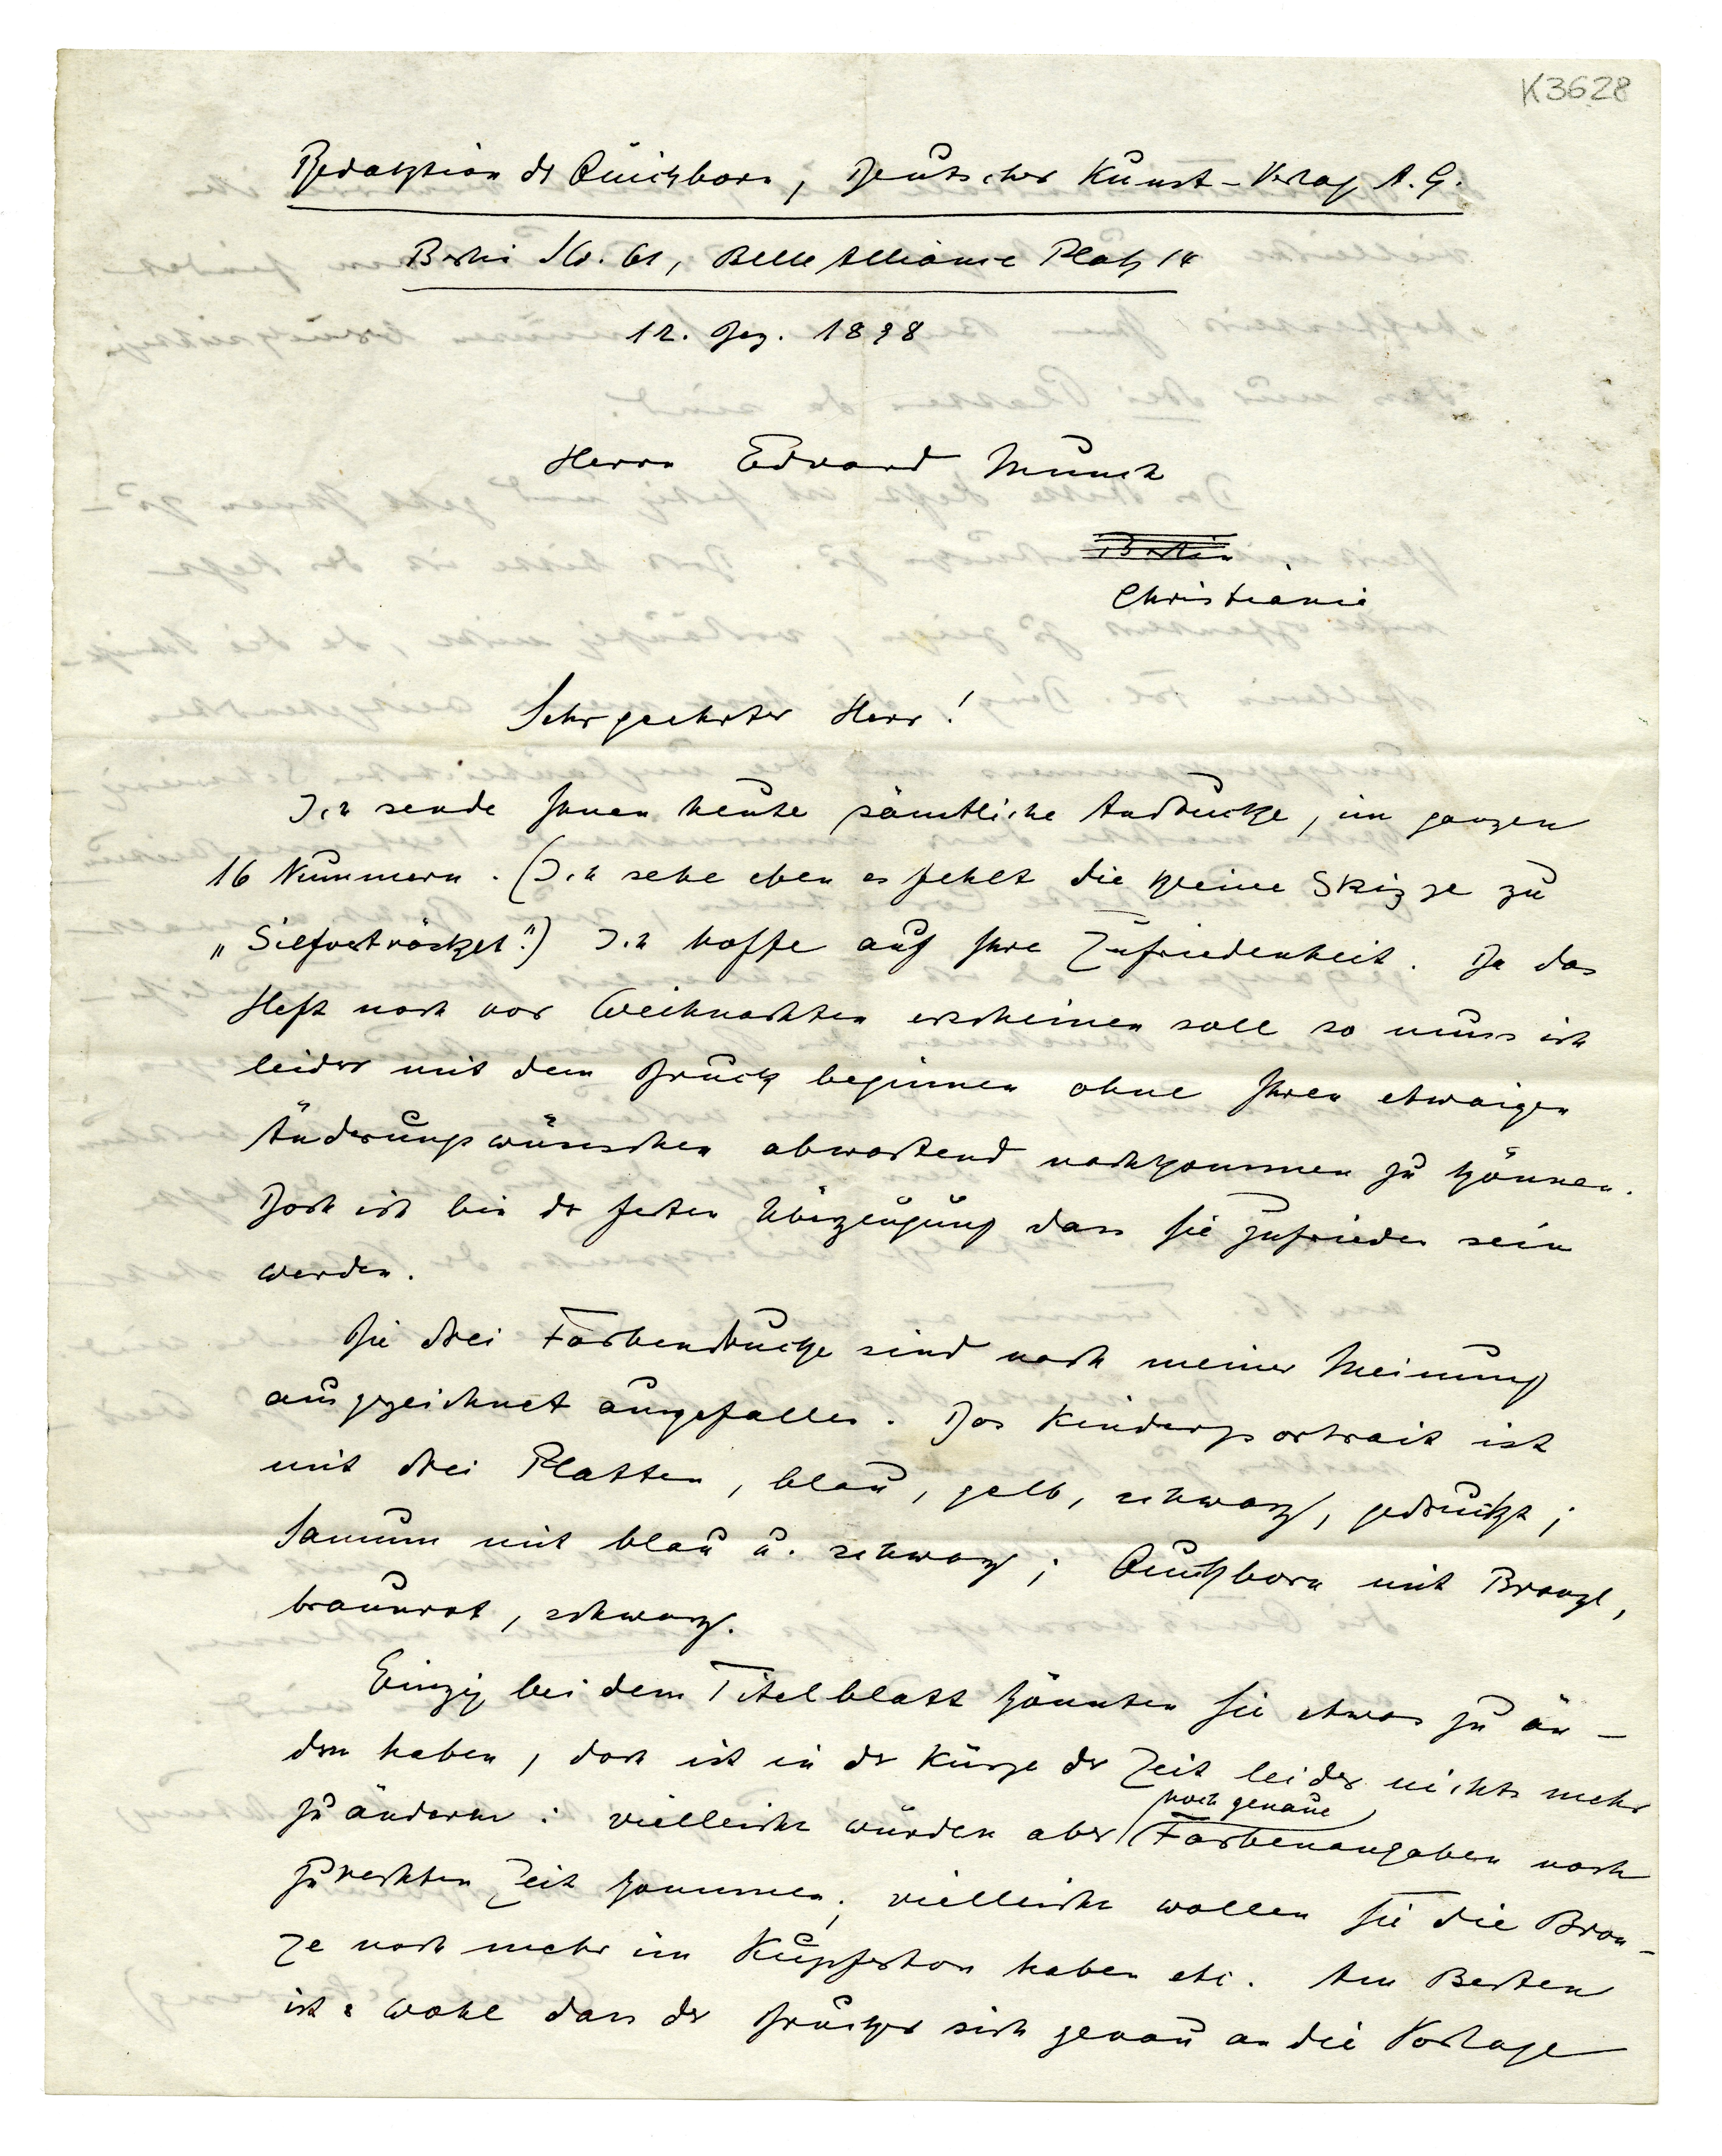 K3628
Redaktion dr Quickborn, Deutscher Kunst-Verlag A. G.
Berlin SW. 61, Belle Alliance Platz 14
12. Dez. 1898
Herrn Edvard Munch
Berlin
Christiania
Sehr geehrter Herr!
Ich sende Ihnen heute sämtliche Andrucke, im ganzen
16 Nummern. (Ich sehe eben es fehlt die kleine Skizze zu
„Silfverträsket".) Ich hoffe auf Ihre Zufriedenheit. Da das
Heft noch vor Weihnachten erscheinen soll so muss ich
leider mit dem Druck beginnen ohne Ihren etwaigen
Änderungswünschen abwartend nachkommen zu können.
Doch ich bin dr festen Überzeugung dass Sie zufrieden sein
werden.
Die drei Farbendrucke sind nach meiner Meinung
ausgezeichnet ausgefallen. Das Kinderportrait ist
mit drei Platten, blau, gelb, schwarz, gedruckt;
Samum mit blau u. schwarz; Quickborn mit Bronze,
braunrot, schwarz.
Einzig bei dem Titelblatt könnten Sie etwas zu än-
dern haben, doch ist in dr Kürze dr Zeit leider nichts mehr
zu ändern: vielleicht würden aber noch genaue Farbenangaben noch
zurechten Zeit kommen; vielleicht wollen Sie die Bron-
ze noch mehr im Kupferton haben etc. Am Besten
ist's wohl dass dr Drucker sich genau an die Vorlage